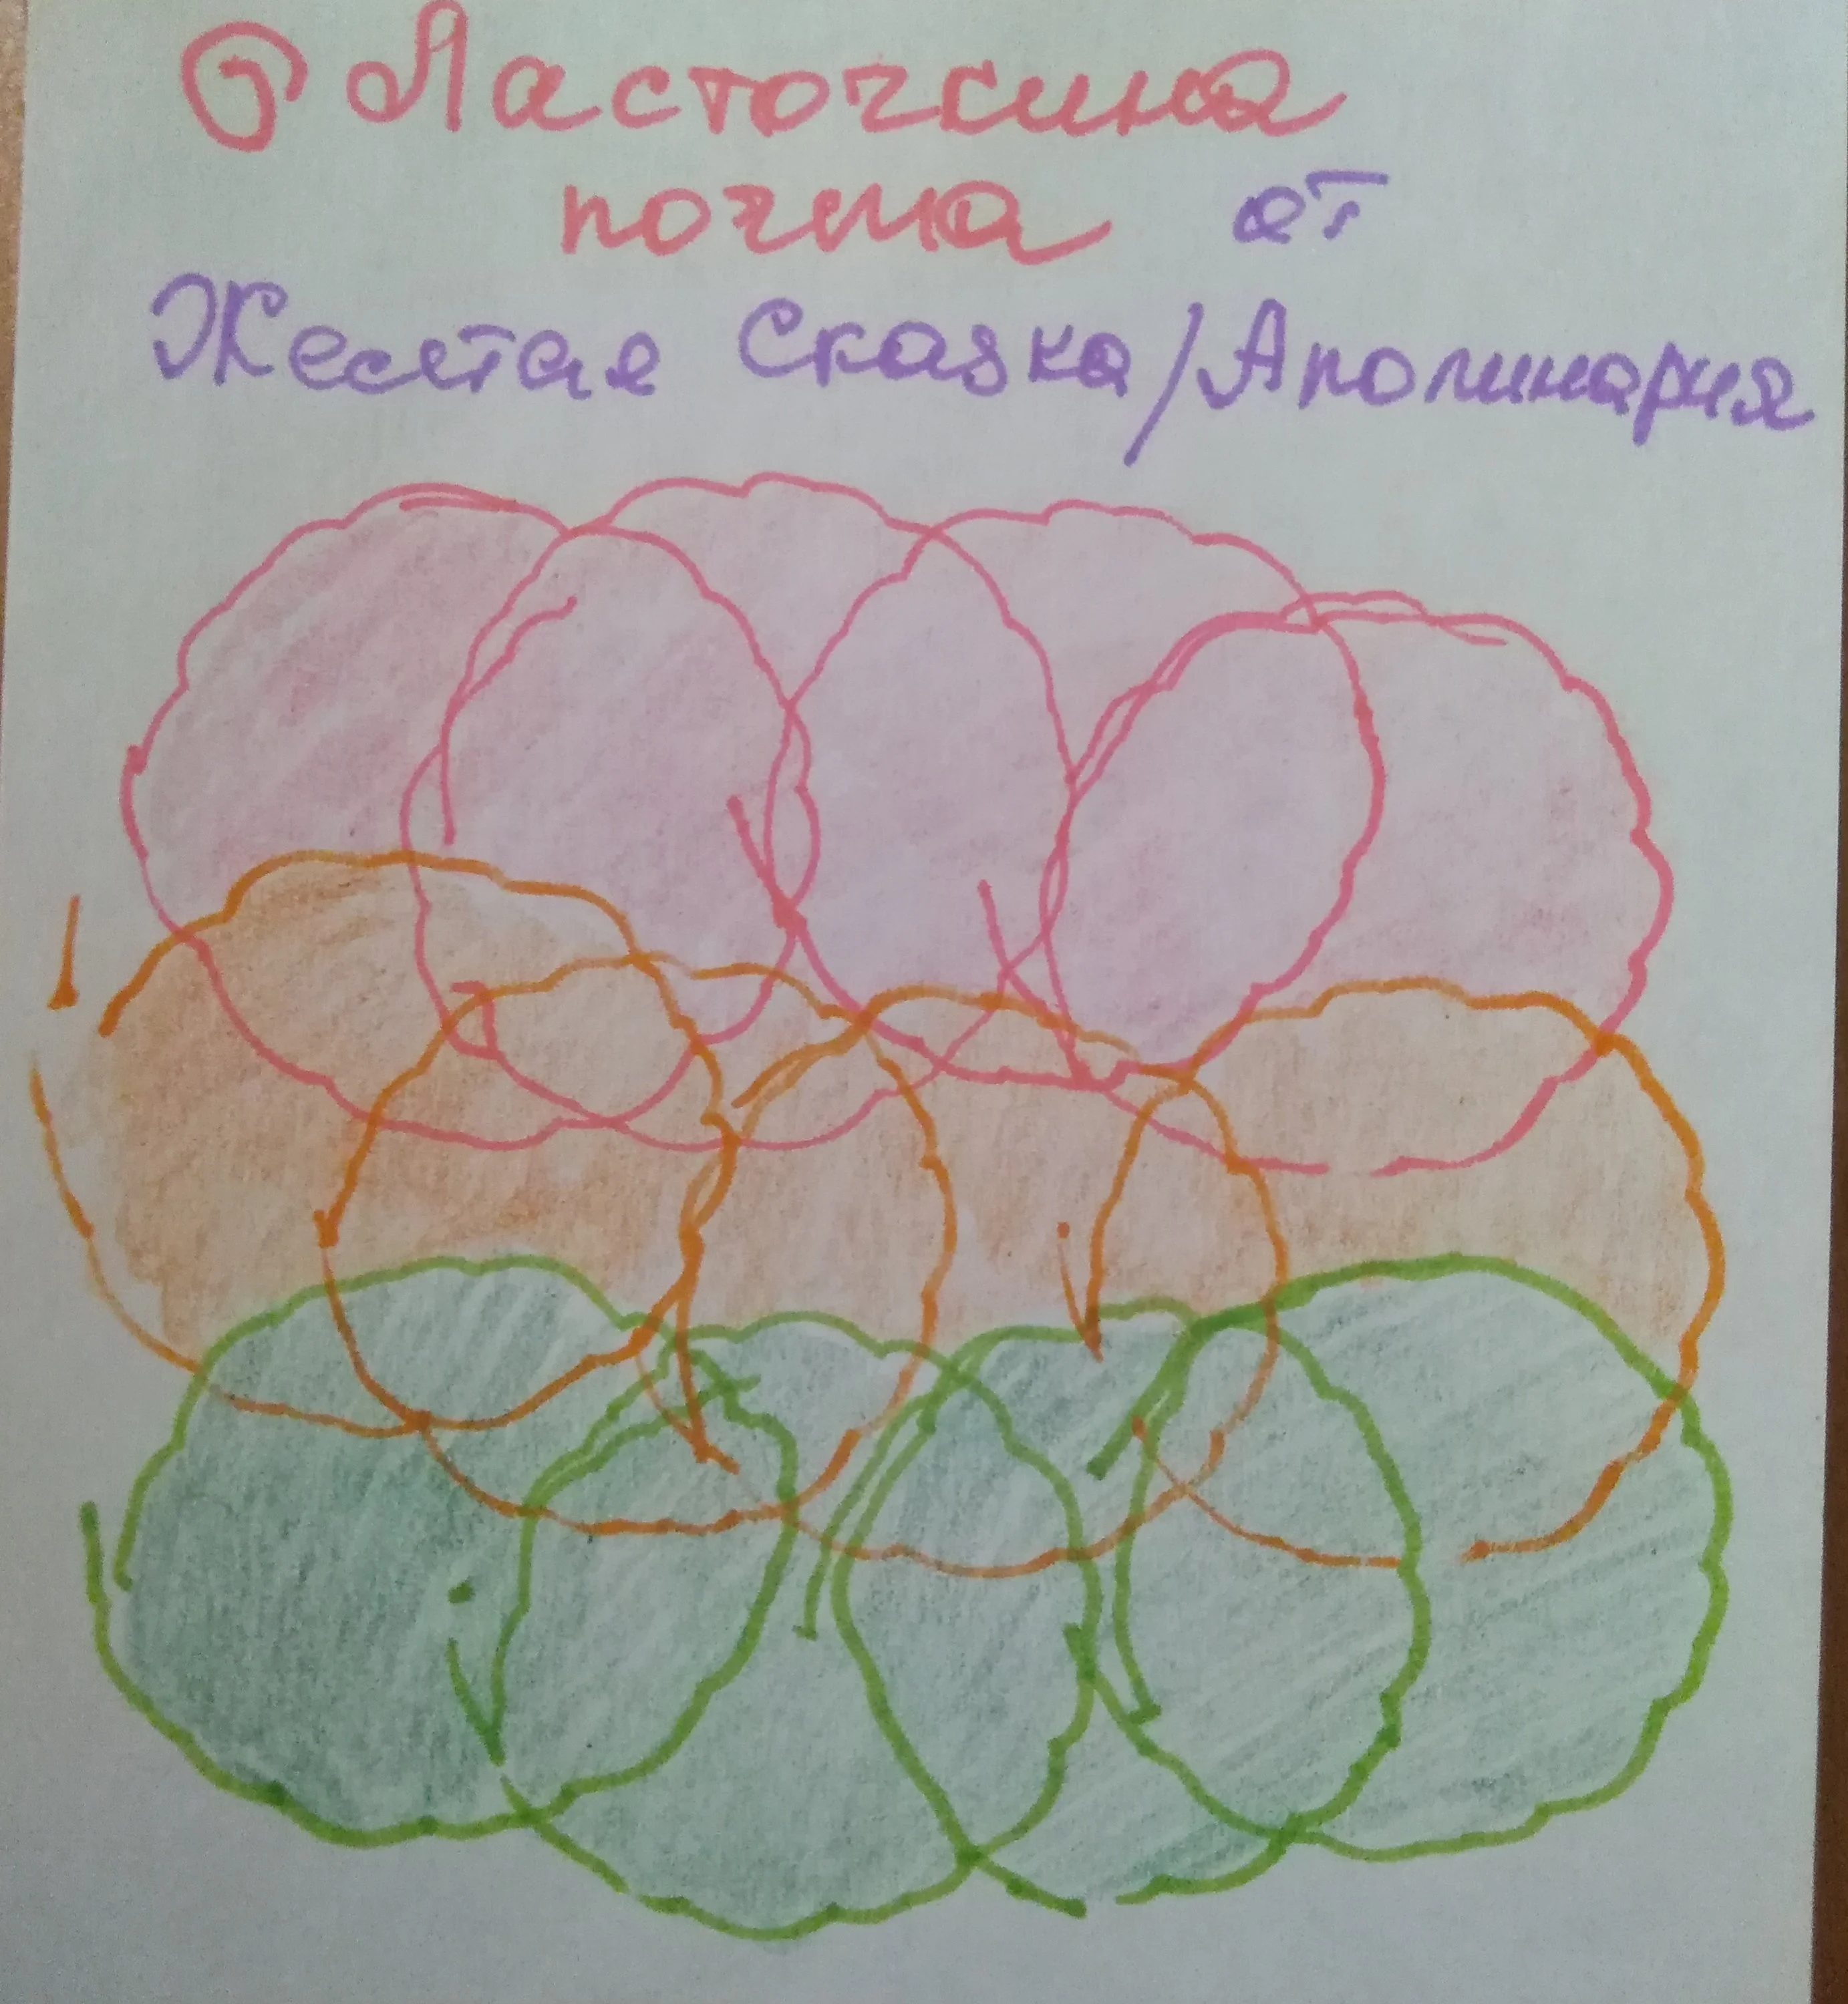 Ласточкина
почта от
Желтая Сказка/Аполинария